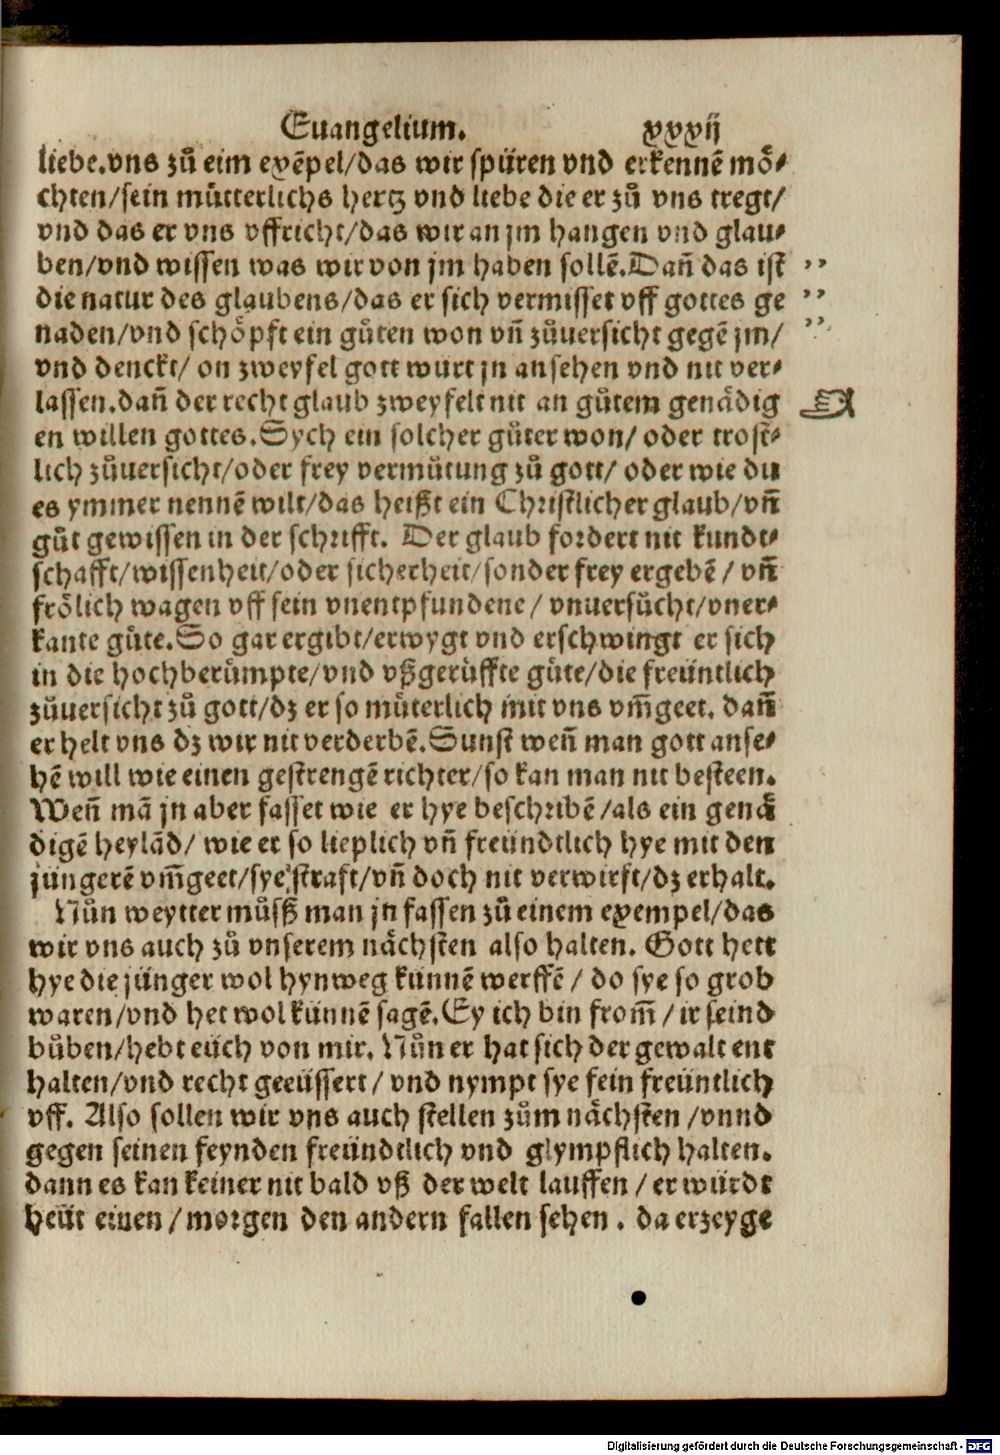 Euangelium. xxxij
liebe.vns zů eim exẽpel/das wir spüren vnd erkennẽ mö⸗
chten/sein můtterlichs hertz vnd liebe die er zů vns tregt/
vnd das er vns vffricht/das wir an jm hangen vnd glau⸗
ben/vnd wissen was wir von jm haben sollẽ.Dañ das ist ,,
die natur des glaubens/das er sich vermisset vff gottes ge ,,
naden/vnd schöpft ein gůten won vñ zůuersicht gegẽ jm/ ,,
vnd denckt/ on zweyfel gott wurt jn ansehen vnd nit ver⸗
lassen.dañ der recht glaub zweyfelt nit an gůtem genädig ☜
en willen gottes.Sych ein solcher gůter won/ oder trost⸗
lich zůuersicht/oder frey vermůtung zů gott/ oder wie du
es ymmer nennẽ wilt/das heißt ein Christlicher glaub/vñ
gůt gewissen in der schrifft. Der glaub fordert nit kundt⸗
schafft/wissenheit/oder sicherheit/sonder frey ergebẽ / vñ
frölich wagen vff sein vnentpfundene / vnuersůcht/vner⸗
kante gůte.So gar ergibt/erwygt vnd erschwingt er sich
in die hochberůmpte/vnd vßgerůffte gůte/die freüntlich
zůuersicht zů gott/dz er so můterlich mit vns vm̃geet. dañ
er helt vns dz wir nit verderbẽ.Sunst weñ man gott anse⸗
hẽ will wie einen gestrengẽ richter/so kan man nit besteen.
Weñ mã jn aber fasset wie er hye beschribẽ /als ein genä
digẽ heylãd/ wie er so lieplich vñ freündtlich hye mit den
jüngerẽ vm̃geet/sye straft/vñ doch nit verwirft/dz erhalt.
Nůn weytter můsß man jn fassen zů einem exempel/das
wir vns auch zů vnserem nächsten also halten. Gott hett
hye die jünger wol hynweg künnẽ werffẽ / do sye so grob
waren/vnd het wol künnẽ sagẽ.Ey ich bin from̃ / ir seind
bůben/hebt eüch von mir. Nůn er hat sich der gewalt ent
halten/vnd recht geeüssert / vnd nympt sye fein freüntlich
vff. Also sollen wir vns auch stellen zům nächsten /vnnd
gegen seinen feynden freündtlich vnd glympflich halten.
dann es kan keiner nit bald vß der welt lauffen / er würdt
heüt einen / morgen den andern fallen sehen . da erzeyge
Digitalisierung gefördert durch die Deutsche Forschungsgemeinschaft - DFG